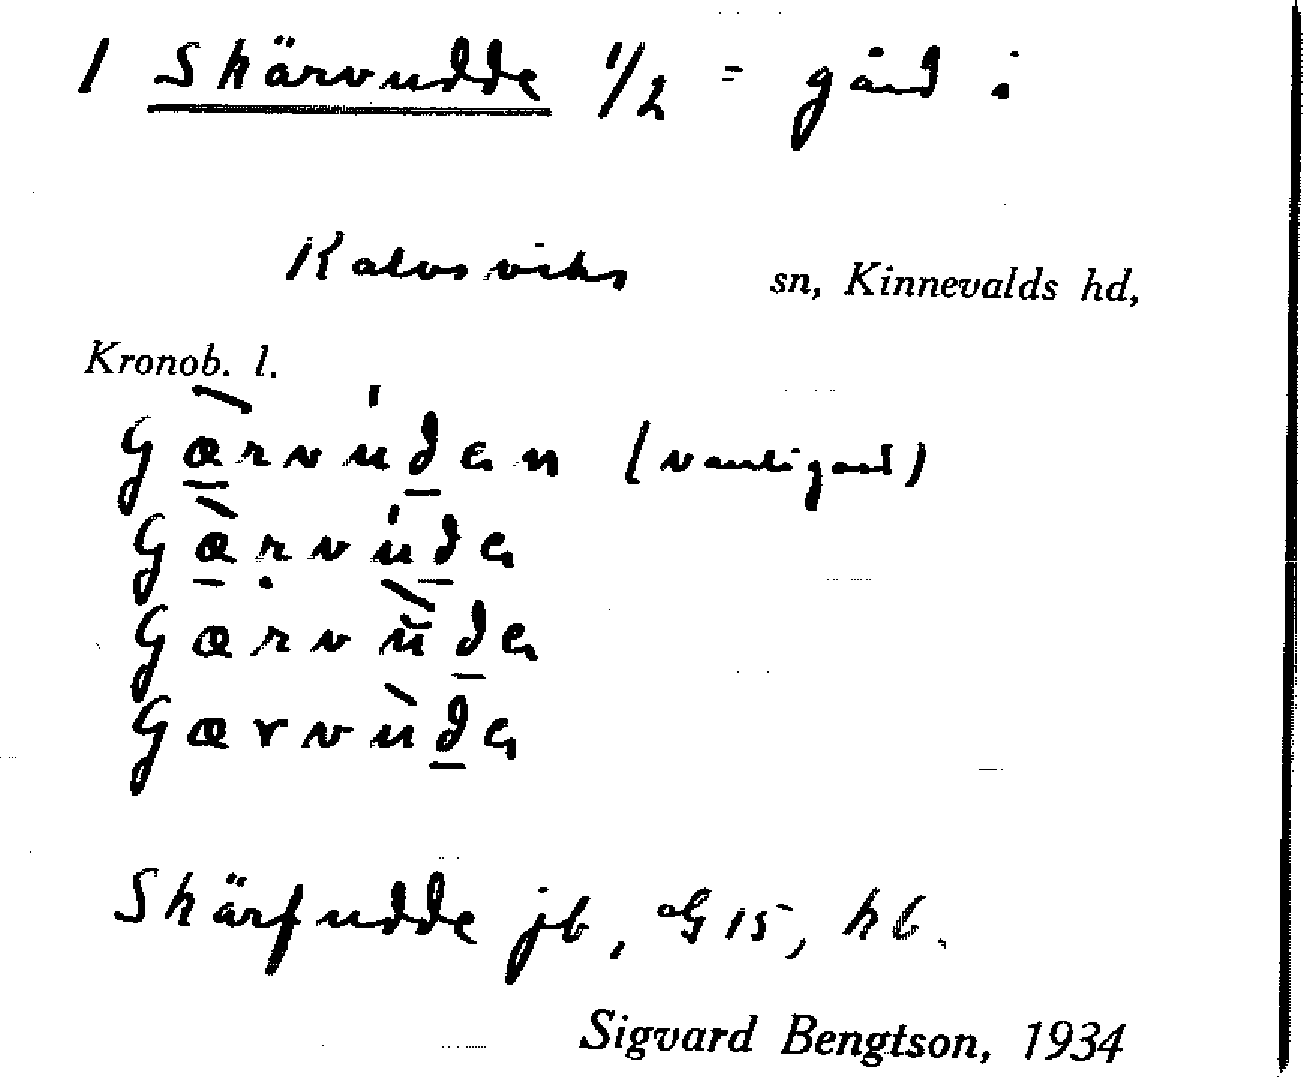 1 Skärvudde 1/2 = gård i
Kalvsviks sn, Kinnevalds hd,
Kronob. l.
Gærvuden (vanligast)
Gærvude
Gærvude
Gærvude
Skärfudde jb, G 15, kb.
Sigvard Bengtson, 1934